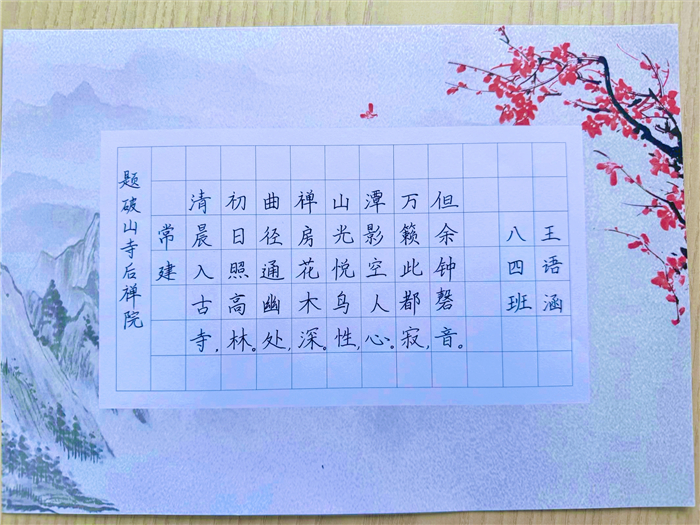 题破山寺后禅院
常建
清晨入古寺，
初日照高林。
曲径通幽处，
禅房花木深。
山光悦鸟性，
潭影空人心。
万籁此都寂，
但余钟磬音。
八四班
王语涵